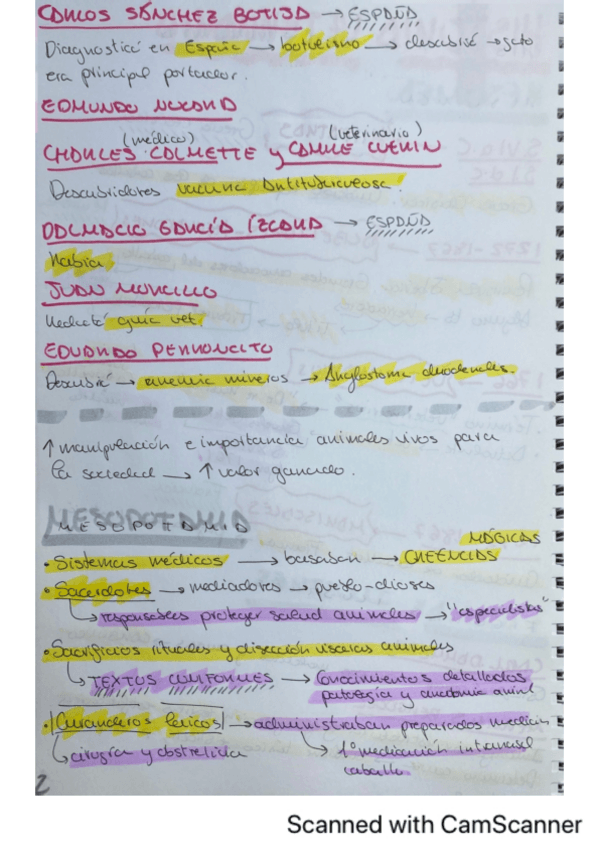 CARLOS SÁNCHEZ BOTIJA → ESPAÑA
Diagnosticó en España → botulismo → descubrió → gato
era principal portador.
EDMUNDO NOCARD
(médico) (veterinario)
CHARLES CALMETTE y CAMILE GUÉRIN
Descubridores vacuna Antituberculosa.
GARCÍA IZCARA → ESPAÑA
Rabia
JUAN MORCILLO
Redactó guía vet
EDUARDO PERRONCITO
Descubrió → anemia mineros → duodenales.
↑ manipulación e importancia animales vivos para
la sociedad → ↑ valor ganado.
MESOPOTAMIA
• Sistemas médicos → basaban → CREENCIAS MÁGICAS
• Sacerdotes → mediadores → pueblo-dioses
↳ responsables proteger salud animales → "especialistas"
• Sacrificios rituales y disección vísceras animales
↳ TEXTOS CUNIFORMES → Conocimientos detallados
patología y anatomía animl
• Curanderos laicos → administraban preparados medicin
↳ cirugía y obstrecida ↳ 1ª medicación intranasal
caballo
2
Scanned with CamScanner